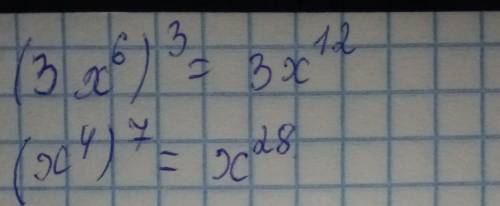 (3x⁶)³ = 3x¹²
(x⁴)⁷ = x²⁸